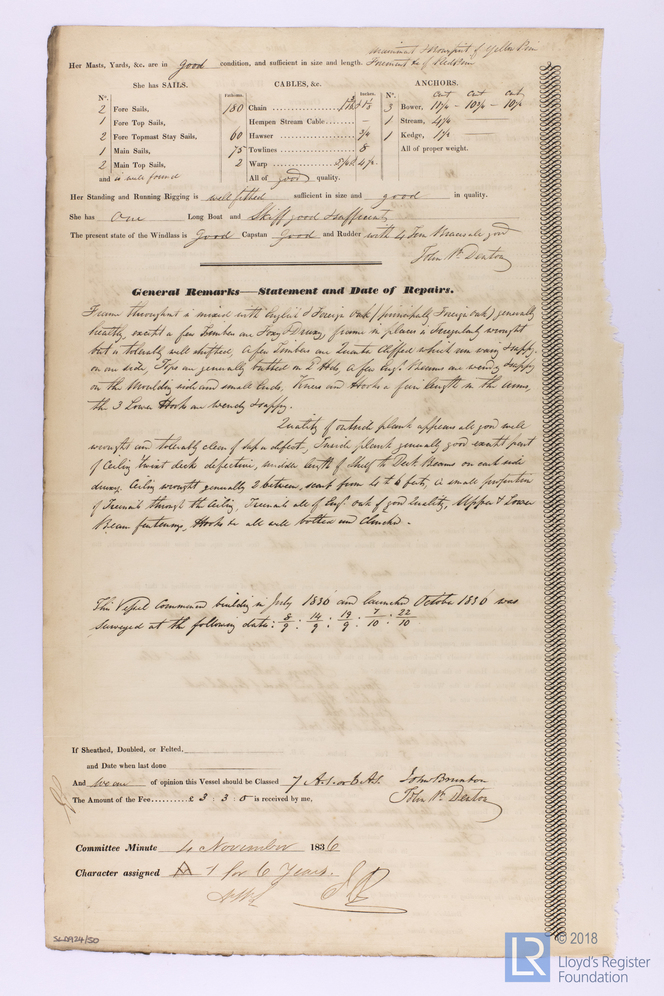 Mainmast & Bowsprit of Yellow Pine
Her Masts, Yards, &c. are in good condition, and sufficient in size and length. Foremast
She has SAILS.
Nº.
2 Fore Sails,
1 Fore Top Sails,
2 Fore Topmast Stay Sails,
1 Main Sails,
2 Main Top Sails,
and is well found
CABLES, &c.
Fathoms. Inches.
180 Chain
Hempen Stream Cable —
60 Hawser
75 Towlines 8
2 Warp
All of good quality.
ANCHORS.
Nº. cwt cwt cwt
3 Bower,
1 Stream,
1 Kedge,
All of proper weight.
Her Standing and Running Rigging is well fitted sufficient in size and good in quality.
She has One Long Boat and Skiff good & sufficient
The present state of the Windlass is Good Capstan Good and Rudder with 4 good
John Wm. Denton
General Remarks—Statement and Date of Repairs.
Frame throughout is mixed with English & Foreign Oak, (principally Foreign Oak) generally
healthy, except a few Timbers are frame in places is irregularly wrought
but is tolerably well shifted, a few Timbers are
on one side, Tops are generally butted on a few Engl. Beams are
on the Moulding side and small ends, Knees and Hooks a fair length in the arms,
the 3 Lower Hooks are
Quality of outside plank appears all good well
wrought and tolerably clear of sap & defect, Inside plank generally good except part
of Ceiling twixt decks defective, middle length of Shelf to Deck Beams on each side
Ceiling wrought generally scarf from 4 to 6 feet, a small proportion
of Treenails through the Ceiling, Treenails all of Engl. oak of good Quality, Upper & Lower
Beam fastenings, Hooks &c all well bolted and Clenched.
This Vessel Commenced building in July 1836 and launched October 1836 was
surveyed at the following dates: 8/9 : 14/9 : 19/9 : 7/10 : 22/10
If Sheathed, Doubled, or Felted,
and Date when last done
And we are of opinion this Vessel should be Classed 7 A.1. or 6 A1. John Brunton
The Amount of the Fee £ 3 : 3 : 0 is received by me, John Wm. Denton
Committee Minute 4 November 1836
Character assigned A 1 for 6 Years.
SLD924/50
LR © 2018
Lloyd's Register
Foundation